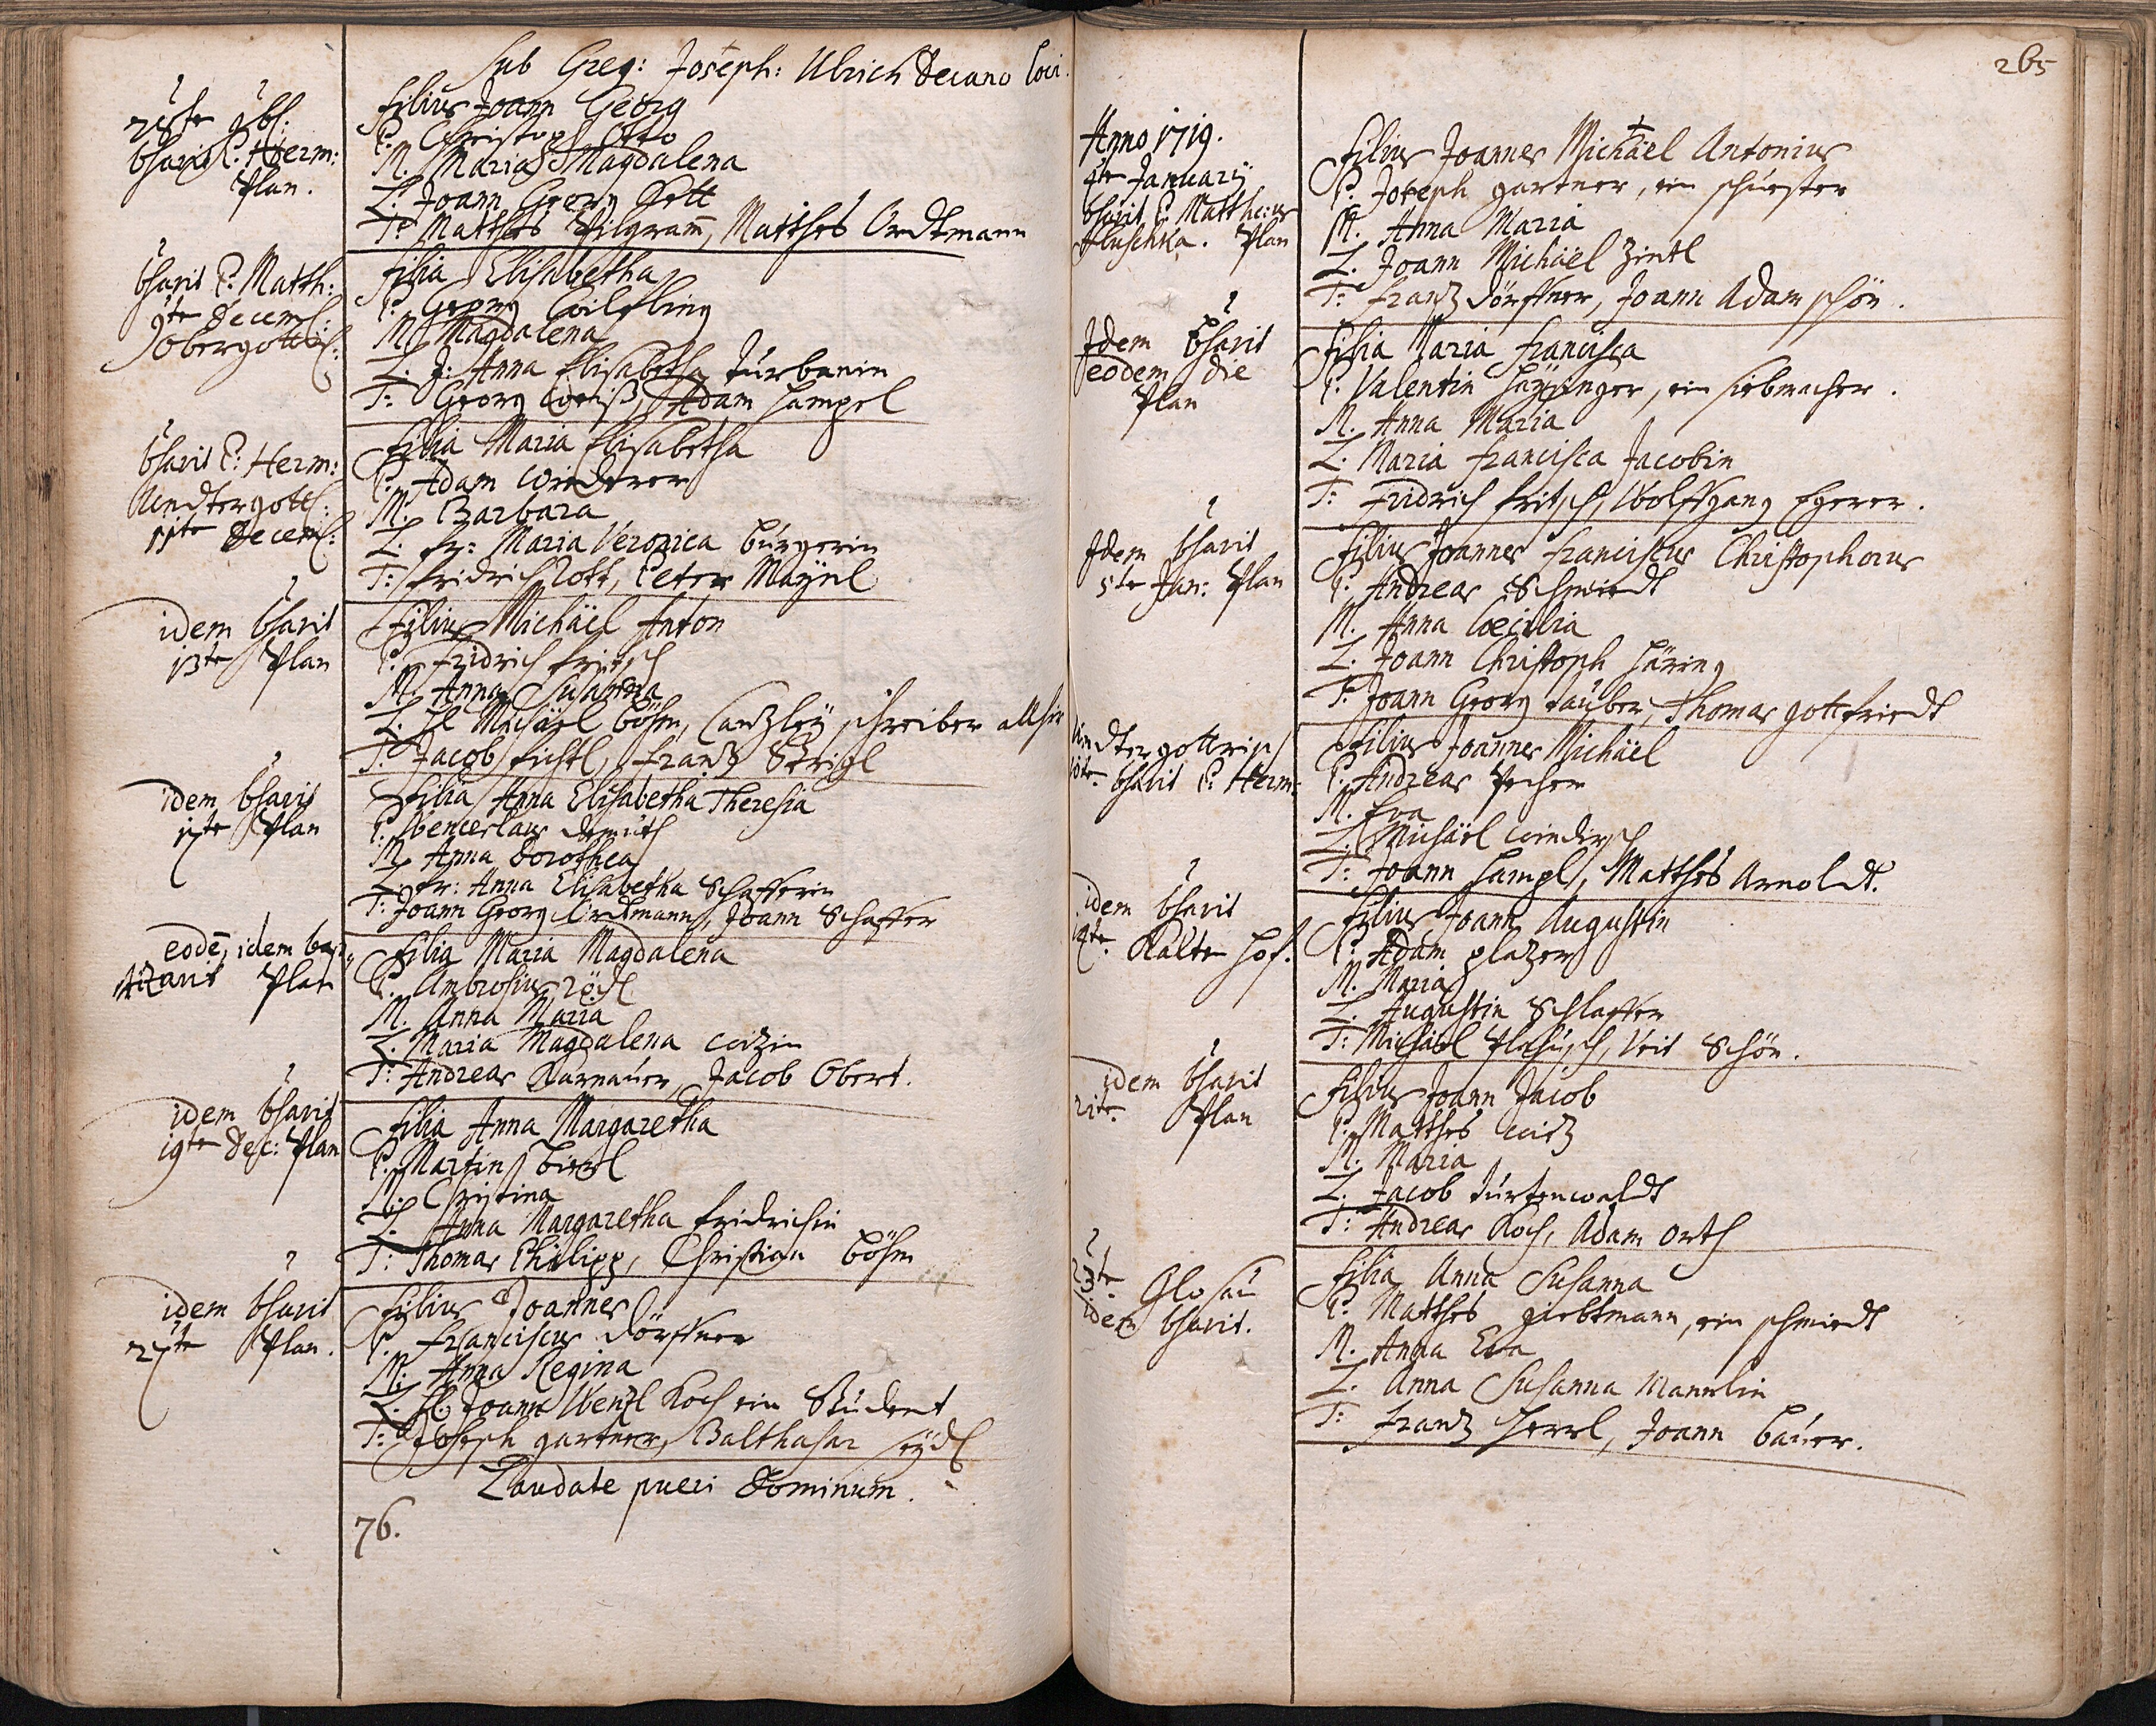 Sub Greg: Joseph: Ulrich Decano loci.
28te 9bl:
bsavit P. Herm:
Plan.
Filius Joann Georg
P. Christoph Otto
M. Maria Magdalena
L. Joann Georg Gott
T: Matthes Pilgram, Matthes Ordtmann
bsavit P. Matth:
9te Decembl:
Obergottl:
Filia Elisabetha
P. Georg Wilfling
M. Magdalena
L. J: Anna Elisabetha Turbanin
T: Georg Weiß, Adam Hampel
bsavit P. Herm:
Undtergottl:
11te Decembl:
Filia Maria Elisabetha
P. Adam Wiederer
M. Barbara
L. Fr: Maria Veronica Bürgerin
T: Fridrich Rott, Peter Maÿerl
idem bsavit
13te Plan
Filius Michäel Anton
P. Fridrich Fritsch
M. Anna Susanna
L. H. Michäel Böhm, Canzleÿ schreiber allhir
T. Jacob Fichtl, Frantz Strigl
idem bsavit
17te Plan
Filia Anna Elisabetha Theresia
P. Wenceslaus Demuth
M. Anna Dorothea
L. Fr: Anna Elisabetha Schafferin
T: Joann Georg Ordtmann, Joann Schaffer
eodē, idem bap„
tizavit Plan
Filia Maria Magdalena
P. Ambrosius
M. Anna Maria
L. Maria Magdalena Wizin
T: Andreas Darnauer, Jacob Obert.
idem bsavit
19te Dec: Plan
Filia Anna Margaretha
P. Martin
M. Christina
L. Anna Margaretha Fridrichin
T: Thomas Philipp, Christian Böhm
idem bsavit
27te Plan.
Filius Joannes
P. Franciscus Dörffner
M. Anna Regina
L. H. Joann Wenzl Koch ein Student
T: Joseph gartner, Balthasar
Laudate pueri Dominum.
76.
265
Anno 1719.
4te Januarÿ
bsavit P. Mattheus
Hluschka. Plan
Filius Joannes Michäel Antonius
P. Joseph gartner, ein schuester
M. Anna Maria
L. Joann Michäel Zintl
T: Frantz Dörffner, Joann Adam schön.
Idem bsavit
eodem die
Plan
Filia Maria Francisca
P. Valentin Haÿsinger, ein siebmacher.
M. Anna Maria
L. Maria Francisca Jacobin
T: Fridrich Fritsch, Wolffgang Egerer.
Idem bsavit
5te Jan: Plan
Filius Joannes Franciscus Christophorus
P. Andreas Schmiedt
M. Anna Cœcilia
L. Joann Christoph Häring
T. Joann Georg Tauber, Thomas gottfriedt
Undtergottrisch
10te bsavit P. Herm:
Filius Joannes Michäel
P. Andreas Pecher
M. Eva
L. Michäel Windisch
T: Joann Hampl, Matthes Arnoldt.
idem bsavit
14te Kaltenhof.
Filius Joann Augustin
P. Adam plazer
M. Maria
L. Augustin Schlaffer
T: Michäel, Veit Schön.
idem bsavit
21te Plan
Filius Joann Jacob
P. Matthes Witz
M. Maria
L. Jacob Türtenwaldt
T: Andreas Koch, Adam Orth
23te Glosau
idem bsavit.
Filia Anna Susanna
P. Matthes giebtmann, ein schmiedt
M. Anna Eva
L. Anna Susanna Mannlin
T: Frantz Herrl, Joann Bauer.